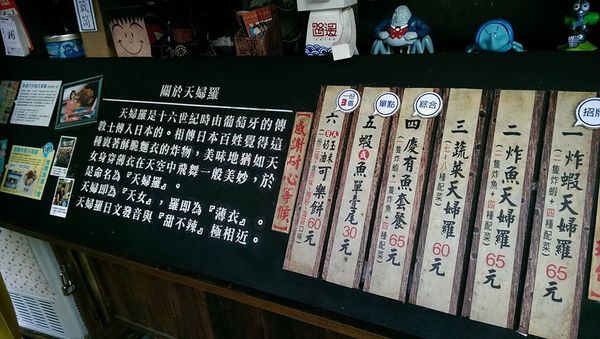 關於天婦羅
天婦羅是十六世紀時由葡萄牙的傳
教士傳入日本的。相傳日本百姓覺得這
種裹著酥脆麵衣的炸物，美味地猶如天
女身穿薄衣在天空中飛舞一般美妙，於
是命名為『天婦羅』。
天婦即為『天女』，羅即為『薄衣』。
天婦羅日文發音與『甜不辣』極相近。
感謝耐心等候
招牌
一 炸蝦天婦羅 65元
(二隻炸蝦+四種配菜)
二 炸魚天婦羅 65元
(二隻炸魚+四種配菜)
三 蔬菜天婦羅 60元
綜合
四 慶有魚套餐 65元
單點
五 蝦或魚單壹尾 30元
一份3個
六 可樂餅 60元